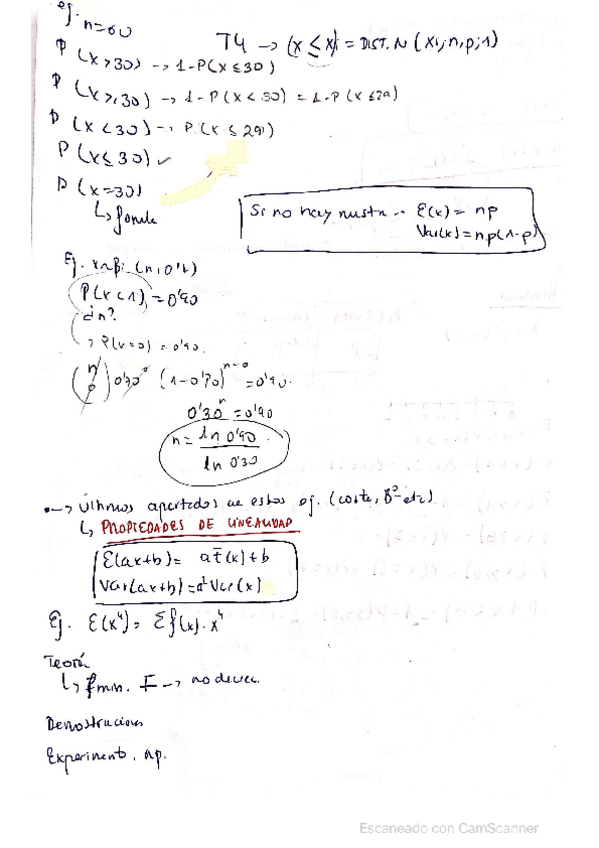 ej. n=60
T4 → (x ≤ xi) = DIST. N (xi; n, p; 1)
P (x > 30) → 1-P(x ≤ 30)
P (x ≥ 30) → 1-P(x < 30) = 1-P(x ≤ 29)
P (x < 30) → P(x ≤ 29)
P (x ≤ 30) ✓
P (x = 30)
↳ fórmula
Si no hay muestra.. E(x) = np
Var(x) = np(1-p)
Ej. x~Bi (n, 0'7)
P(x < 1) = 0'90
¿n?
→ P(x=0) = 0'90.
(n 0) 0'70⁰ (1-0'70)ⁿ⁻⁰ = 0'90.
0'30ⁿ = 0'90
n = ln 0'90 / ln 0'30
•→ Últimos apartados de estos ej. (coste, Bº etc)
↳ PROPIEDADES DE LINEALIDAD
E(ax+b) = aE(x)+b
Var(ax+b) = a²Var(x)
Ej. E(x⁴) = Σf(x)·x⁴
Teoría
↳ fmin. F → no decrec.
Demostracion
Experimento, np.
Escaneado con CamScanner